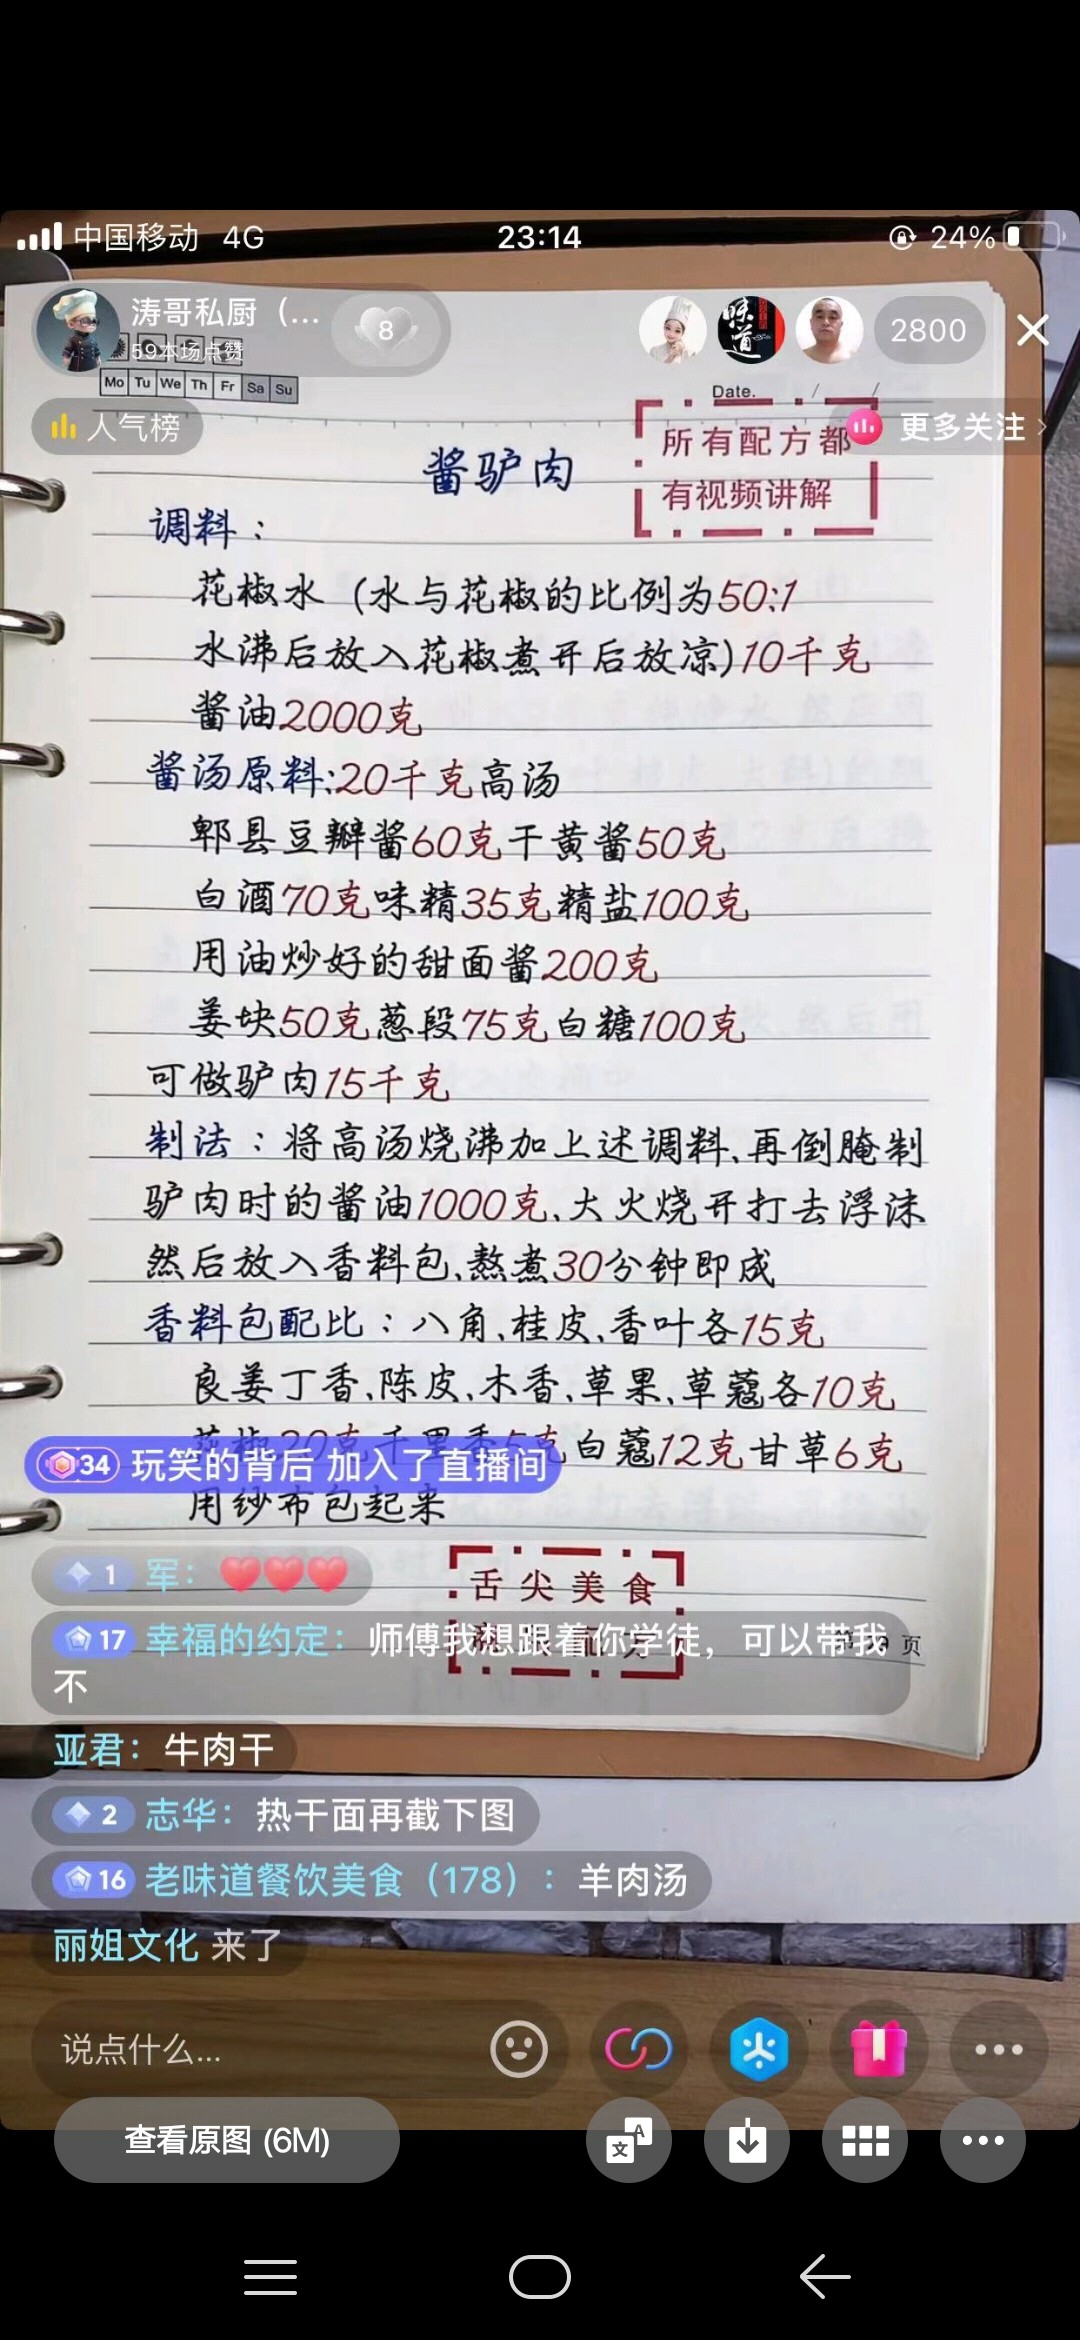 中国移动 4G 23:14 24%
涛哥私厨（... 8 2800
59本场点赞
Mo Tu We Th Fr Sa Su
Date. / /
人气榜
更多关注
所有配方都
有视频讲解
酱驴肉
调料：
花椒水（水与花椒的比例为50:1
水沸后放入花椒煮开后放凉)10千克
酱油2000克
酱汤原料:20千克高汤
郫县豆瓣酱60克干黄酱50克
白酒70克味精35克精盐100克
用油炒好的甜面酱200克
姜块50克葱段75克白糖100克
可做驴肉15千克
制法：将高汤烧沸加上述调料、再倒腌制
驴肉时的酱油1000克、大火烧开打去浮沫
然后放入香料包、熬煮30分钟即成
香料包配比：八角、桂皮、香叶各15克
良姜丁香、陈皮、木香、草果、草蔻各10克
花椒20克千里香5克白蔻12克甘草6克
34 玩笑的背后 加入了直播间
用纱布包起来
舌尖美食
页
1 军：❤❤❤
17 幸福的约定：师傅我想跟着你学徒，可以带我
不
亚君：牛肉干
2 志华：热干面再截下图
16 老味道餐饮美食（178）：羊肉汤
丽姐文化 来了
说点什么...
查看原图 (6M)